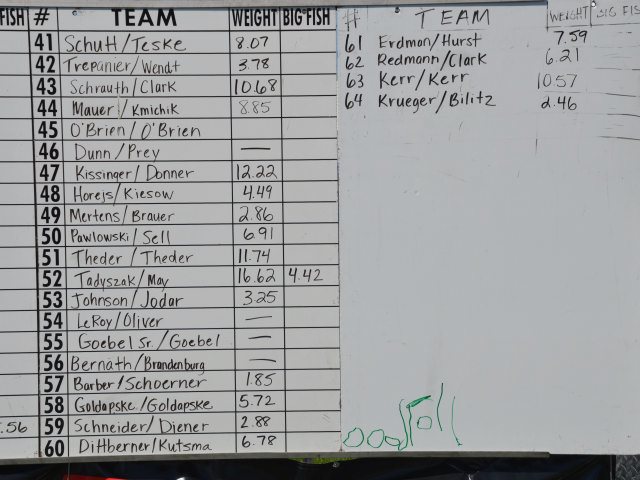 FISH # TEAM WEIGHT BIG FISH
41 Schutt/Teske 8.07
42 Trepanier/Wendt 3.78
43 Schrauth/Clark 10.68
44 Mauer/Kmichik 8.85
45 O'Brien/O'Brien
46 Dunn/Prey —
47 Kissinger/Donner 12.22
48 Horejs/Kiesow 4.49
49 Mertens/Brauer 2.86
50 Pawlowski/Sell 6.91
51 Theder/Theder 11.74
52 Tadyszak/May 16.62 4.42
53 Johnson/Jodar 3.25
54 LeRoy/Oliver —
55 Goebel Sr./Goebel —
56 Bernath/Brandenburg —
57 Barber/Schoerner 1.85
58 Goldapske/Goldapske 5.72
.56 59 Schneider/Diener 2.88
60 Dittberner/Kutsma 6.78
# TEAM WEIGHT BIG FIS
61 Erdmon/Hurst 7.59
62 Redmann/Clark 6.21
63 Kerr/Kerr 10.57
64 Krueger/Bilitz 2.46